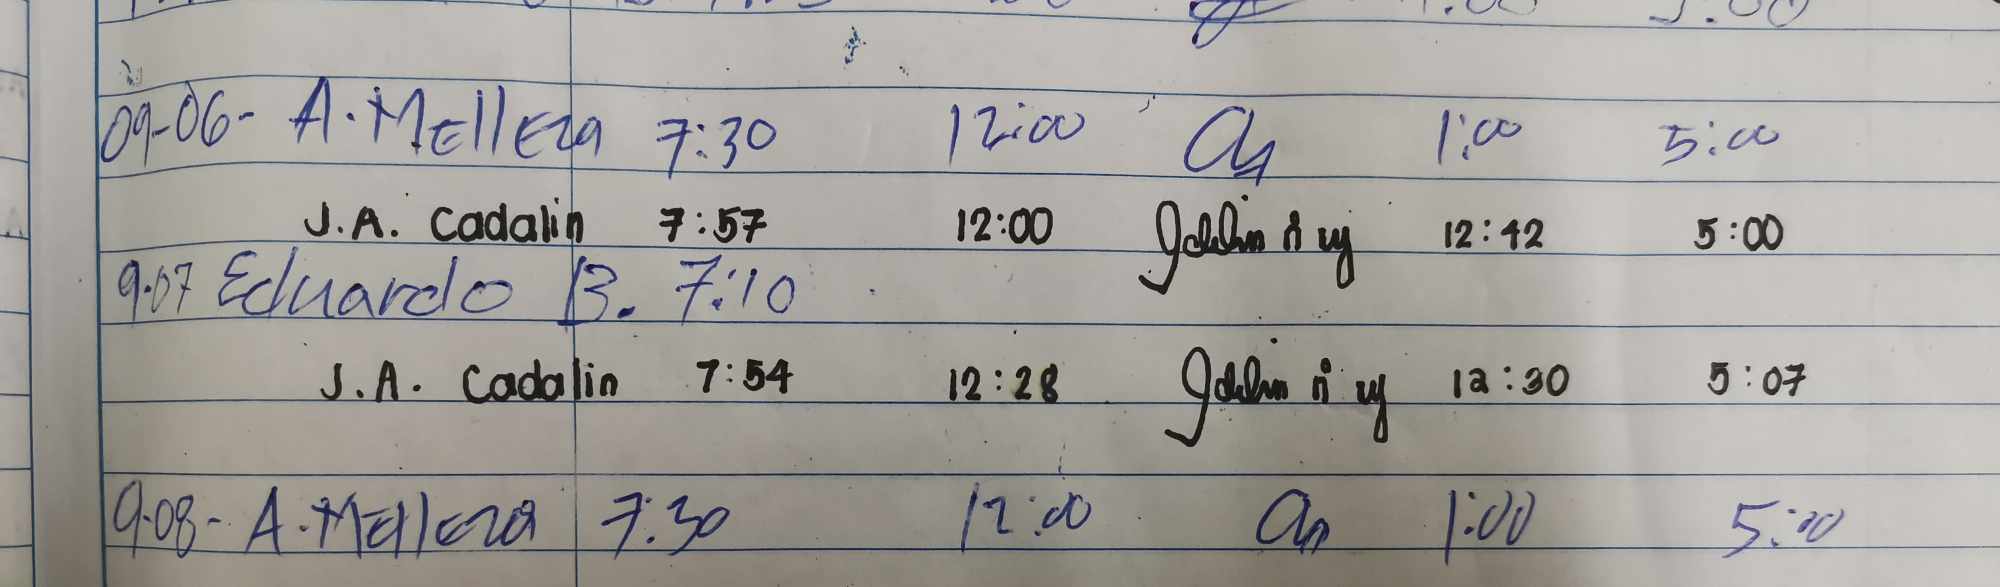 09-06- A. Melleza 7:30 12:00 1:00 5:00
J.A. Cadalin 7:57 12:00 12:42 5:00
9-07 Eduardo B. 7:10
J.A. Cadalin 7:54 12:28 12:30 5:07
9-08- A. Melleza 7:30 12:00 1:00 5:00